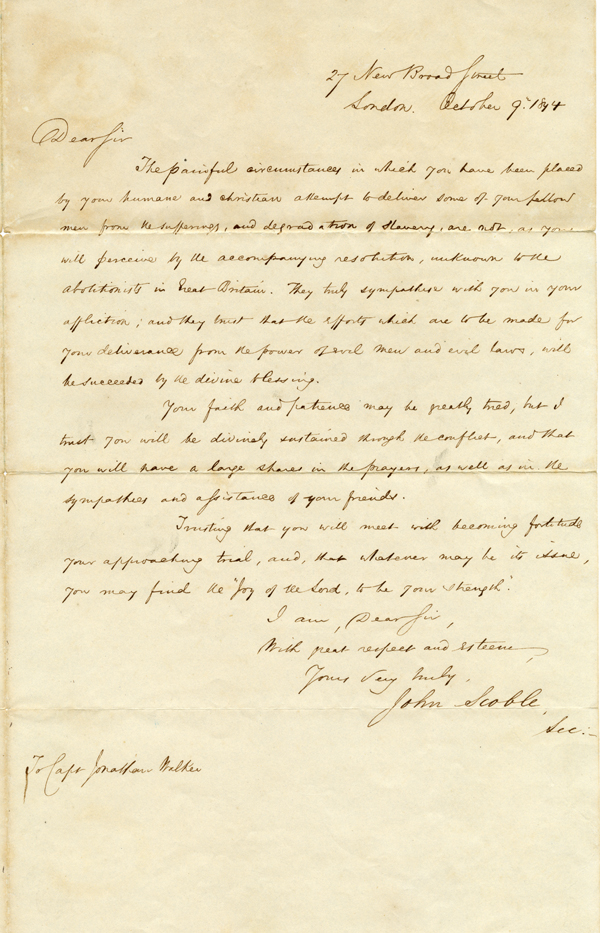 27 New Broad Street
London. October 9. 1844
Dear Sir
The painful circumstances in which you have been placed
by your humane and christian attempt to deliver some of your fellow
men from the sufferings, and degradation of slavery, are not, as you
will perceive by the accompanying resolution, unknown to the
abolitionists in Great Britain. They truly sympathise with you in your
affliction; and they trust that the efforts which are to be made for
your deliverance from the power of evil men and evil laws, will
be succeeded by the divine blessing.
Your faith and patience may be greatly tried, but I
trust you will be divinely sustained through the conflict, and that
you will have a large share in the prayers, as well as in the
sympathies and assistance of your friends.
Trusting that you will meet with becoming fortitude
your approaching trial, and, that whatever may be its issue,
you may find the "Joy of the Lord, to be your strength".
I am, Dear Sir,
With great respect and esteem,
Yours very truly,
John Scoble,
Sec:-
To Capt Jonathan Walker